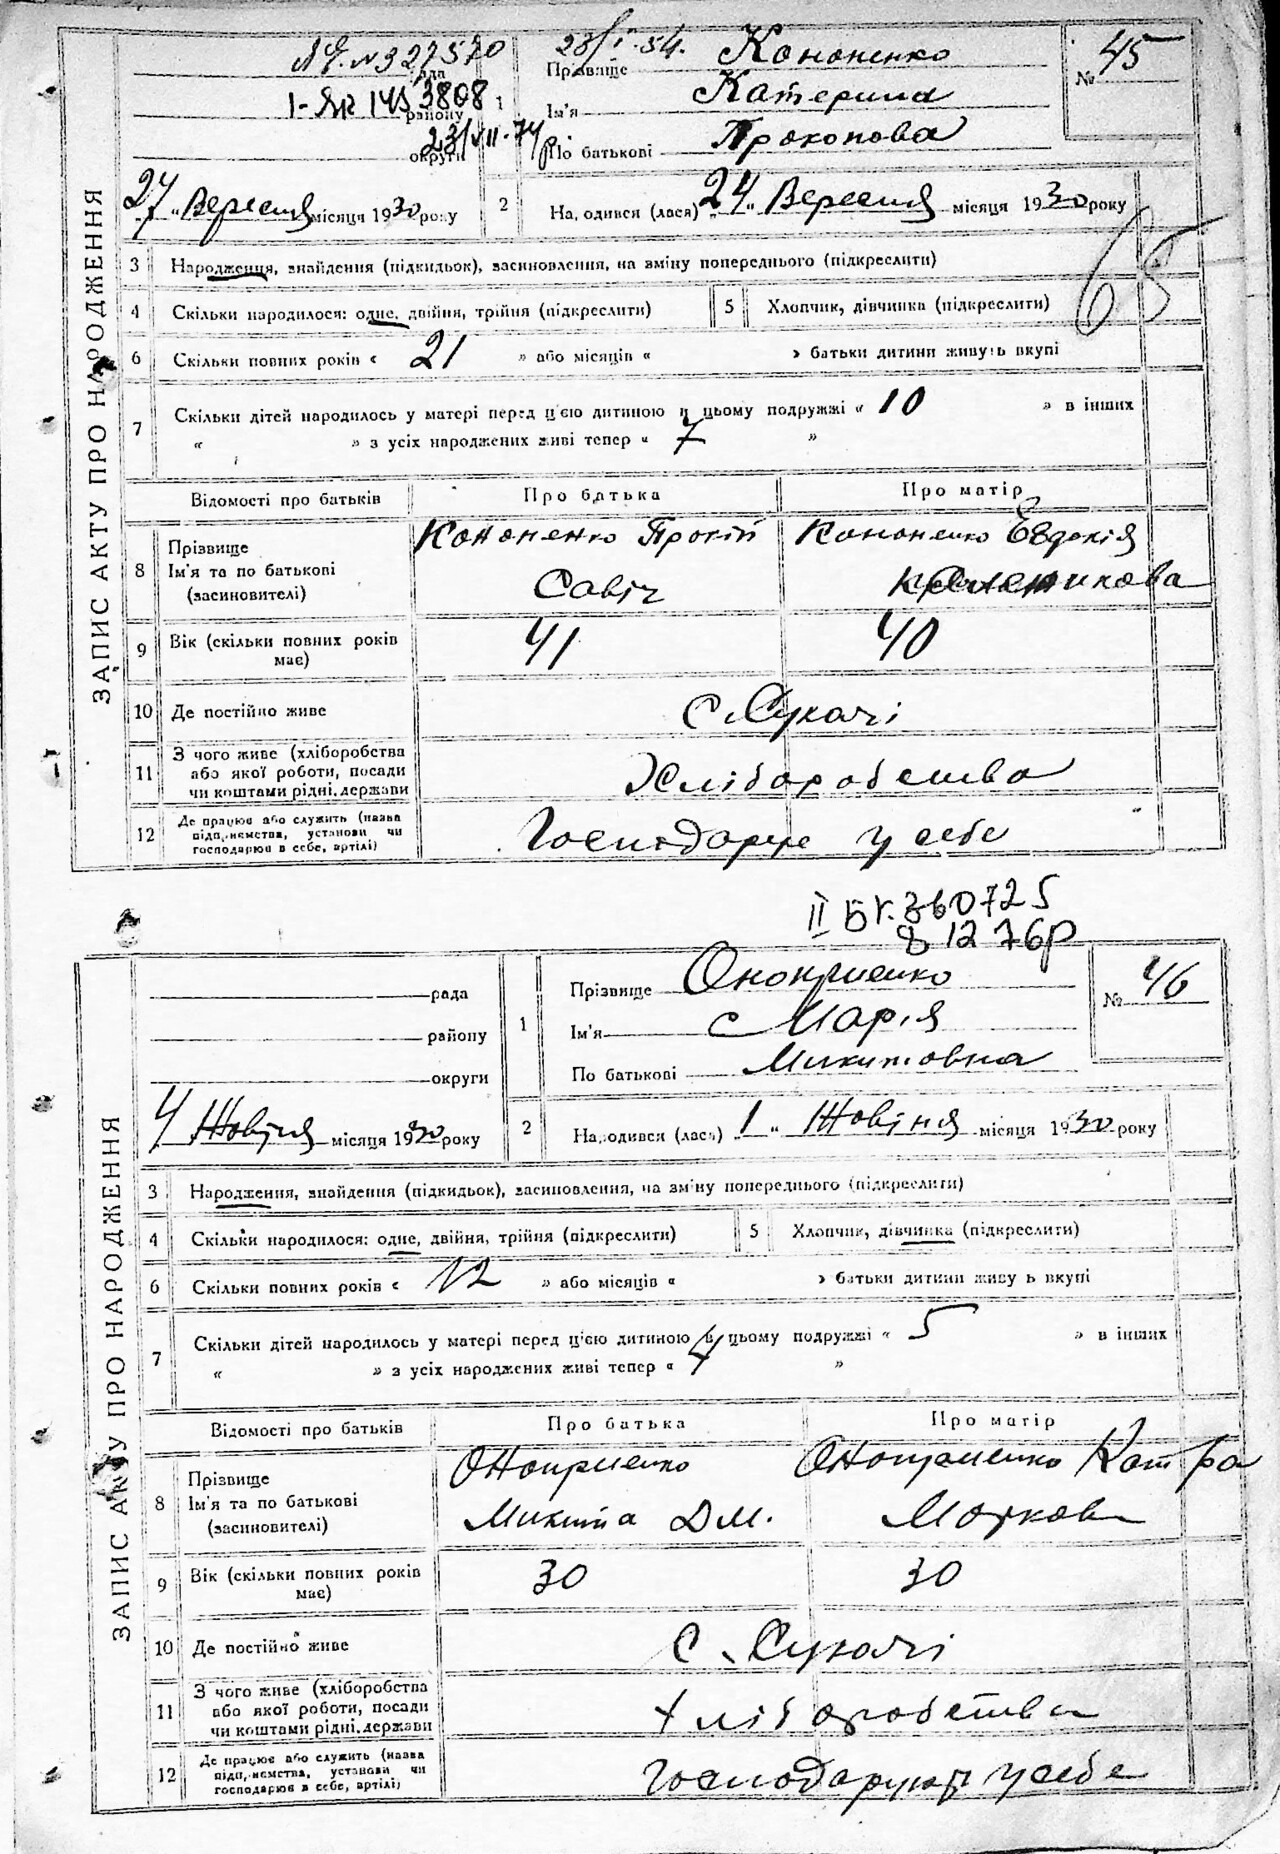 ЗАПИС АКТУ ПРО НАРОДЖЕННЯ
N327570
рада
3808
району
округи
27 " Вересня місяця 1930 року
1
28/I-54.
Прізвище Кононенко
Ім'я Катерина
По батькові Прокопова
№ 45
2 Народився (лася) „24" Вересня місяця 1930 року
65
3 Народження, знайдення (підкидьок), засиновлення, на зміну попереднього (підкреслити)
4 Скільки народилося: одне, двійня, трійня (підкреслити)
5 Хлопчик, дівчинка (підкреслити)
6 Скільки повних років « 21 » або місяців « » батьки дитини живуть вкупі
7 Скільки дітей народилось у матері перед ц'єю дитиною в цьому подружжі « 10 » в інших
« » з усіх народжених живі тепер « 7 »
Відомості про батьків Про батька Про матір
8 Прізвище Кононенко Прокіп Кононенко Євдокія
Ім'я та по батькові Савіч
(засиновителі)
9 Вік (скільки повних років має) 41 40
10 Де постійно живе с. Сукачі
11 З чого живе (хліборобства
або якої роботи, посади Хліборобства
чи коштами рідні, держави
12 Де працює або служить (назва
підп,иємства, установи чи Господарує у себе
господарює в себе, артілі)
II БК. 360725
8 12 76р
ЗАПИС АКТУ ПРО НАРОДЖЕННЯ
рада
району
округи
4 Жовтня місяця 1930 року
1
Прізвище Оноприенко
Ім'я Марія
По батькові Микитовна
№ 46
2 Народився (лася) „1" Жовтня місяця 1930 року
3 Народження, знайдення (підкидьок), засиновлення, на зміну попереднього (підкреслити)
4 Скільки народилося: одне, двійня, трійня (підкреслити)
5 Хлопчик, дівчинка (підкреслити)
6 Скільки повних років « 12 » або місяців « » батьки дитини живу ь вкупі
7 Скільки дітей народилось у матері перед ц'єю дитиною в цьому подружжі « 5 » в інших
« » з усіх народжених живі тепер « 4 »
Відомості про батьків Про батька Про матір
8 Прізвище Оноприенко Оноприенко Катра
Ім'я та по батькові Микита Дм. Маркова
(засиновителі)
9 Вік (скільки повних років має) 30 30
10 Де постійно живе с. Сукачі
11 З чого живе (хліборобства
або якої роботи, посади хліборобства
чи коштами рідні, держави
12 Де працює або служить (назва
підп,иємства, установи чи Господарують у себе
господарює в себе, артілі)